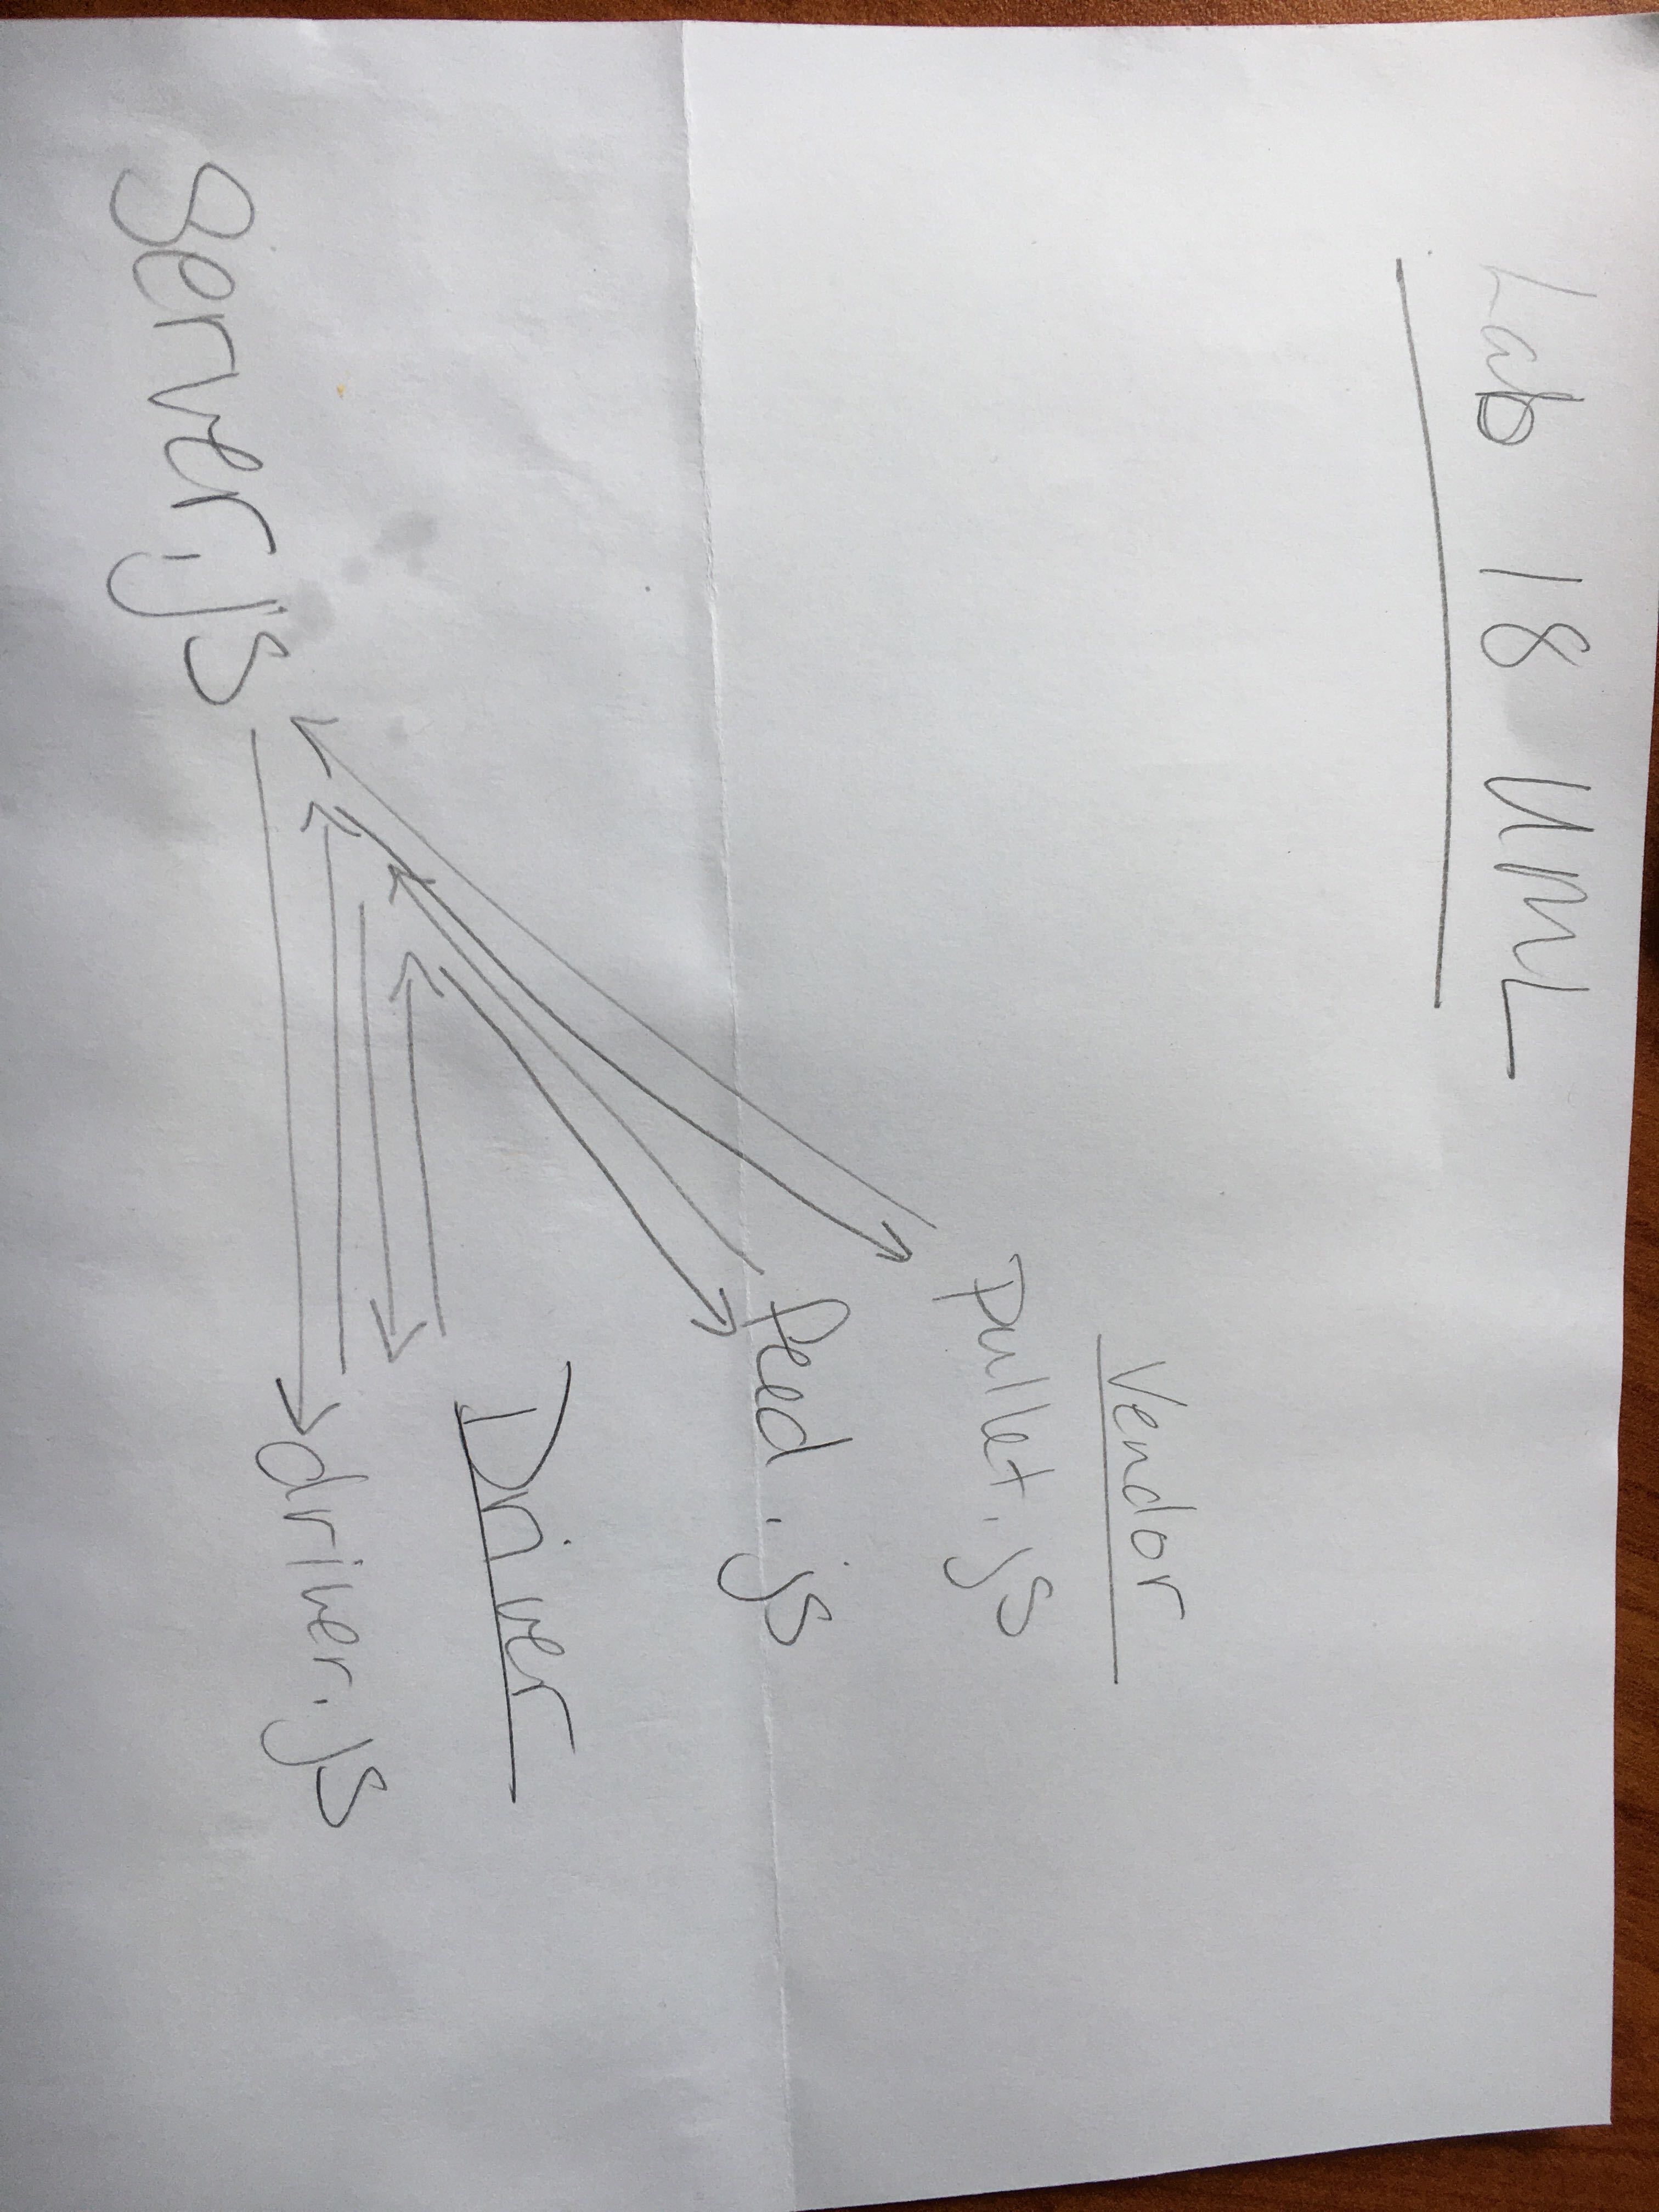 Lab 18 UML
Vendor
pullet.js
feed.js
Server.js
Driver
driver.js